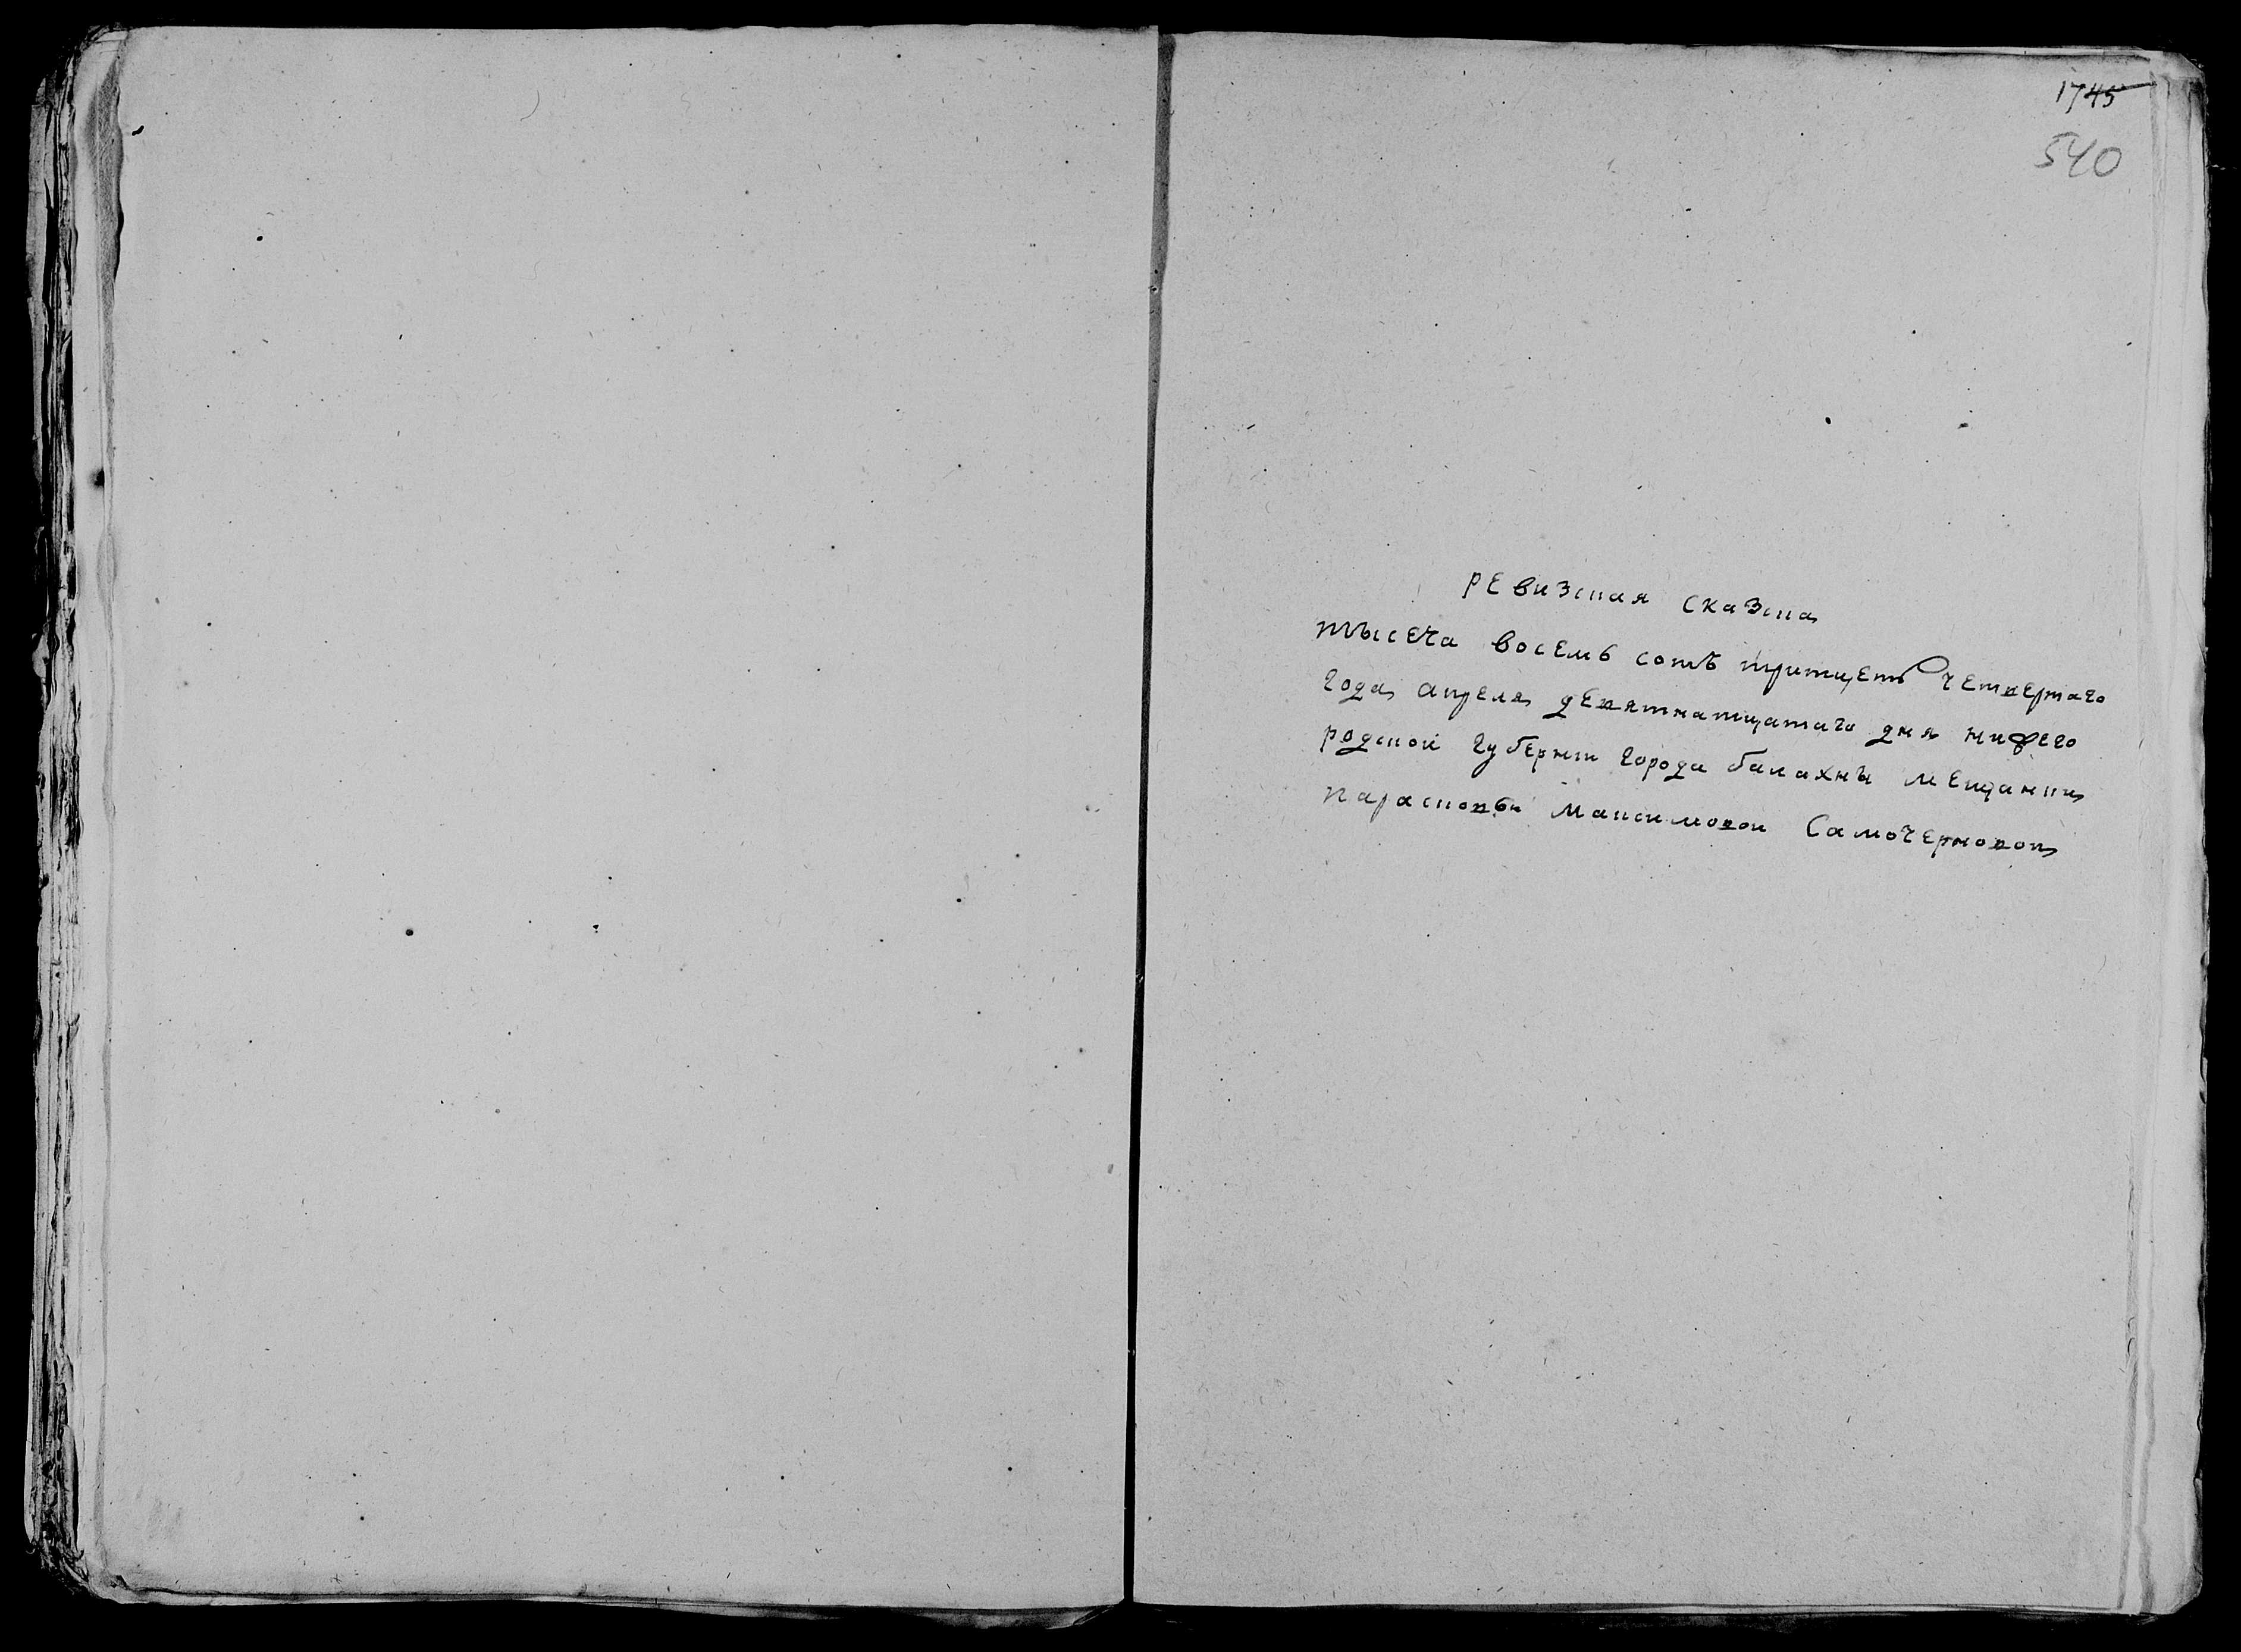 1745
540
ревизская сказка
тысеча восемь сотъ тритцеть четвертаго
года апреля девятнатцатаго дня нижего
родской губернiи города балахны мещанки
парасковьи Максимовой Самочерновой